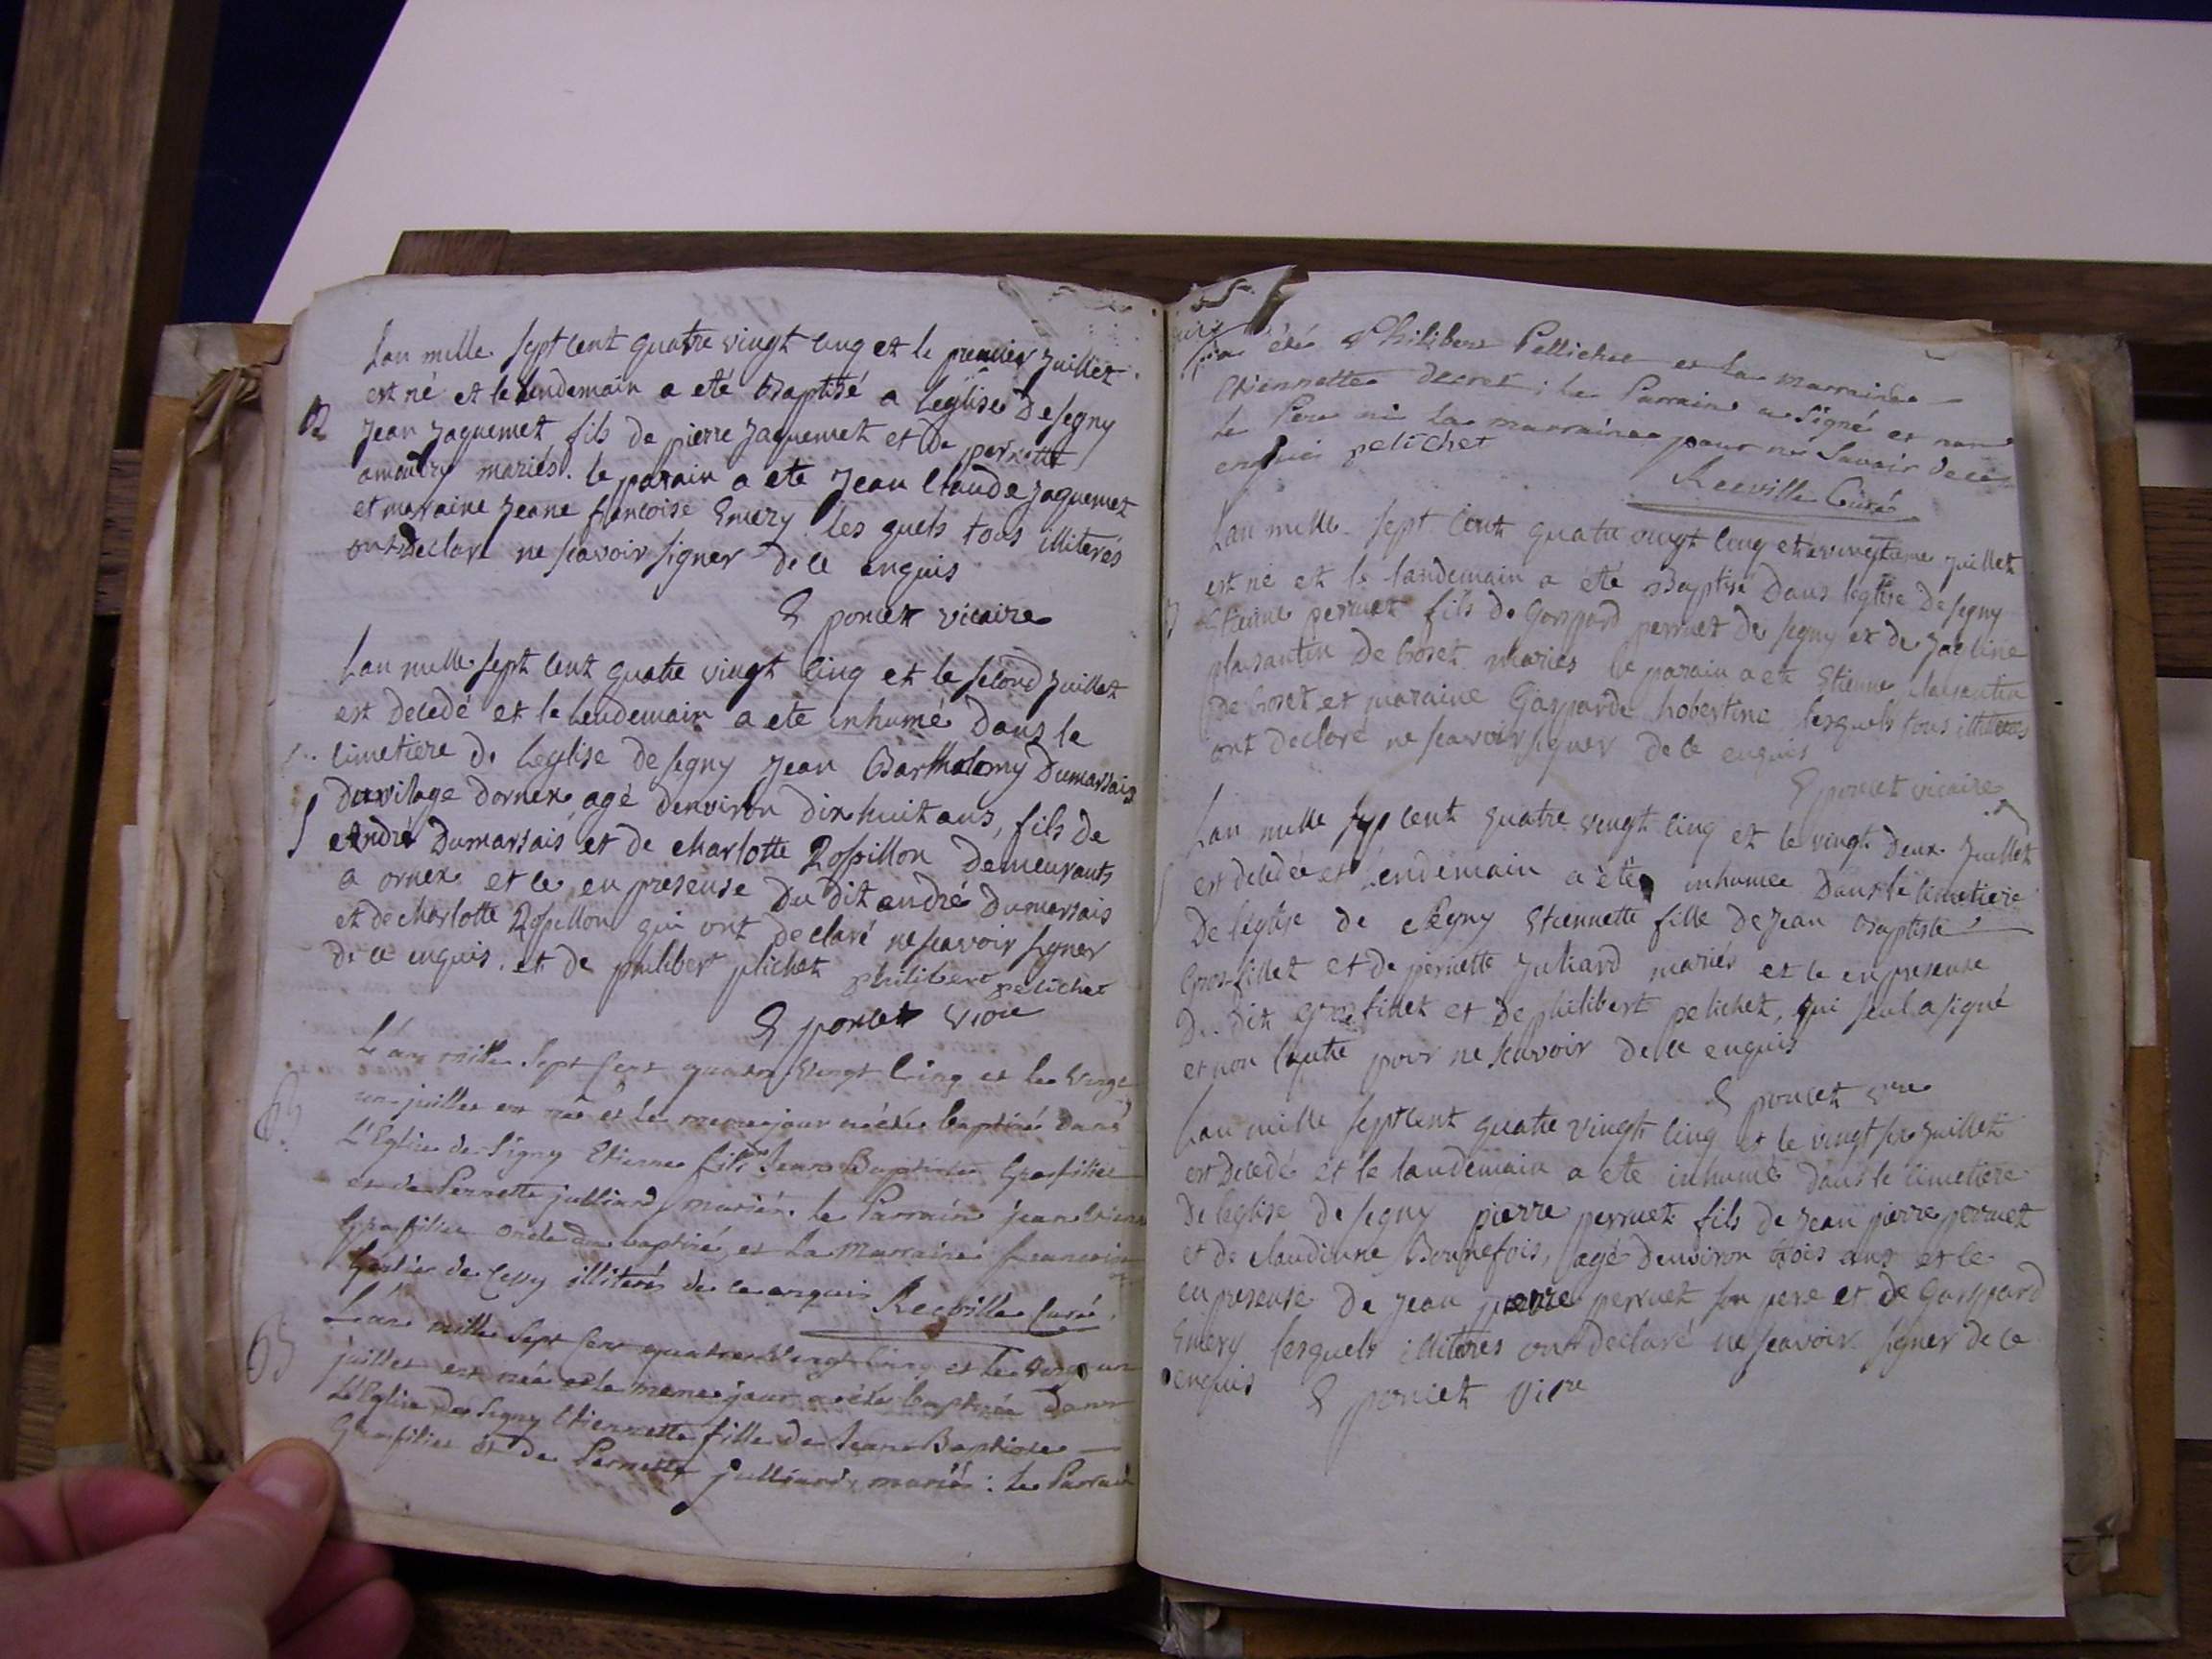 Lan mille sept cent quatre vingt cinq et le premier juillet
est né et le lendemain a eté Baptisé a Leglise De segny
Jean Jaquemet fils de pierre Jaquemet et De pernette
amaudry mariés. le parain a ete Jean Claude Jaquemet
et maraine Jeane francoise Emery les quels tous illiterés
ont Declaré ne scavoir signer de ce enquis
poncet vicaire
Lan mille sept cent quatre vingt cinq et le second Juillet
est Decedé et le Lendemain a ete inhumé Dans le
cimetiere De Leglise de segny Jean Bartholomy Dumarsais
Du vilage dornex agé denviron dix huit ans, fils de
André Dumarsais et de charlotte Rossillon Demeurants
a ornex et ce en presense Du Dit andré Dumarsais
et de charlotte Rossillon qui ont declaré ne scavoir signer
De ce enquis. et de philibert plichet philibert pelichet
poncet vicre
L'an mille Sept Cent quatre Vingt Cinq et le Vingt
un juillet est né et le meme jour a été baptisé dans
L'Eglise de Segny Etienne fils Jean Baptiste Grosfillet
et de Pernette julliard mariés. le Parrain jean Etienne
Grosfillet oncle du baptisé, et La Marraine francoise
de Cessy illiterés de ce enquis Recville Curé.
L'an mille Sept Cent quatre Vingt Cinq et le Vingt un
juillet est née et le meme jour a été baptisée dans
L'Eglise de Segny Etiennette fille de Jean Baptiste
Grosfillet et de Pernette julliard, mariés : le Parrain
a été Philibert Pellichet et la marraine
Etiennette Decret ; le Parrain a Signé et non
le Pere ni La marraine pour ne Savoir de ce
enquis pelichet
Recville Curé
Lan mille sept Cent quatre vingt cinq et le vingtieme juillet
est né et le landemain a été Baptisé Dans léglise De segny
Etienne perruet fils de Gaspard perruet de segny et de Jacline
plaisantin De Croset mariés le parain a ete Etienne plaisantin
De Croset et maraine Gasparde hobertine lesquels tous illiteres
ont declaré ne scavoir signer De ce enquis
poncet vicaire
Lan mille sept cent quatre vingt cinq et le vingt Deux Juillet
est decedée et Lendemain a été inhumée Dans le cimetiere
De léglise de Segny Etiennette fille de Jean Baptiste
Gros-fillet et de pernette Juliard mariés et ce en presense
Du Dit grosfillet et De philibert pelichet, qui seul a signé
et non lautre pour ne scavoir De ce enquis
poncet vre
Lan mille sept cent quatre vingt cinq et le vingt six Juillet
est Decedé et le landemain a ete inhumé dans le cimetiere
De leglise de segny pierre perruet fils de Jean pierre perruet
et de claudinne Bonnefois, agé denviron trois ans et ce
en presense De Jean pierre perruet son pere et de Gaspard
Emery lesquels illiteres ont declaré ne scavoir signer de ce
enquis poncet vicre